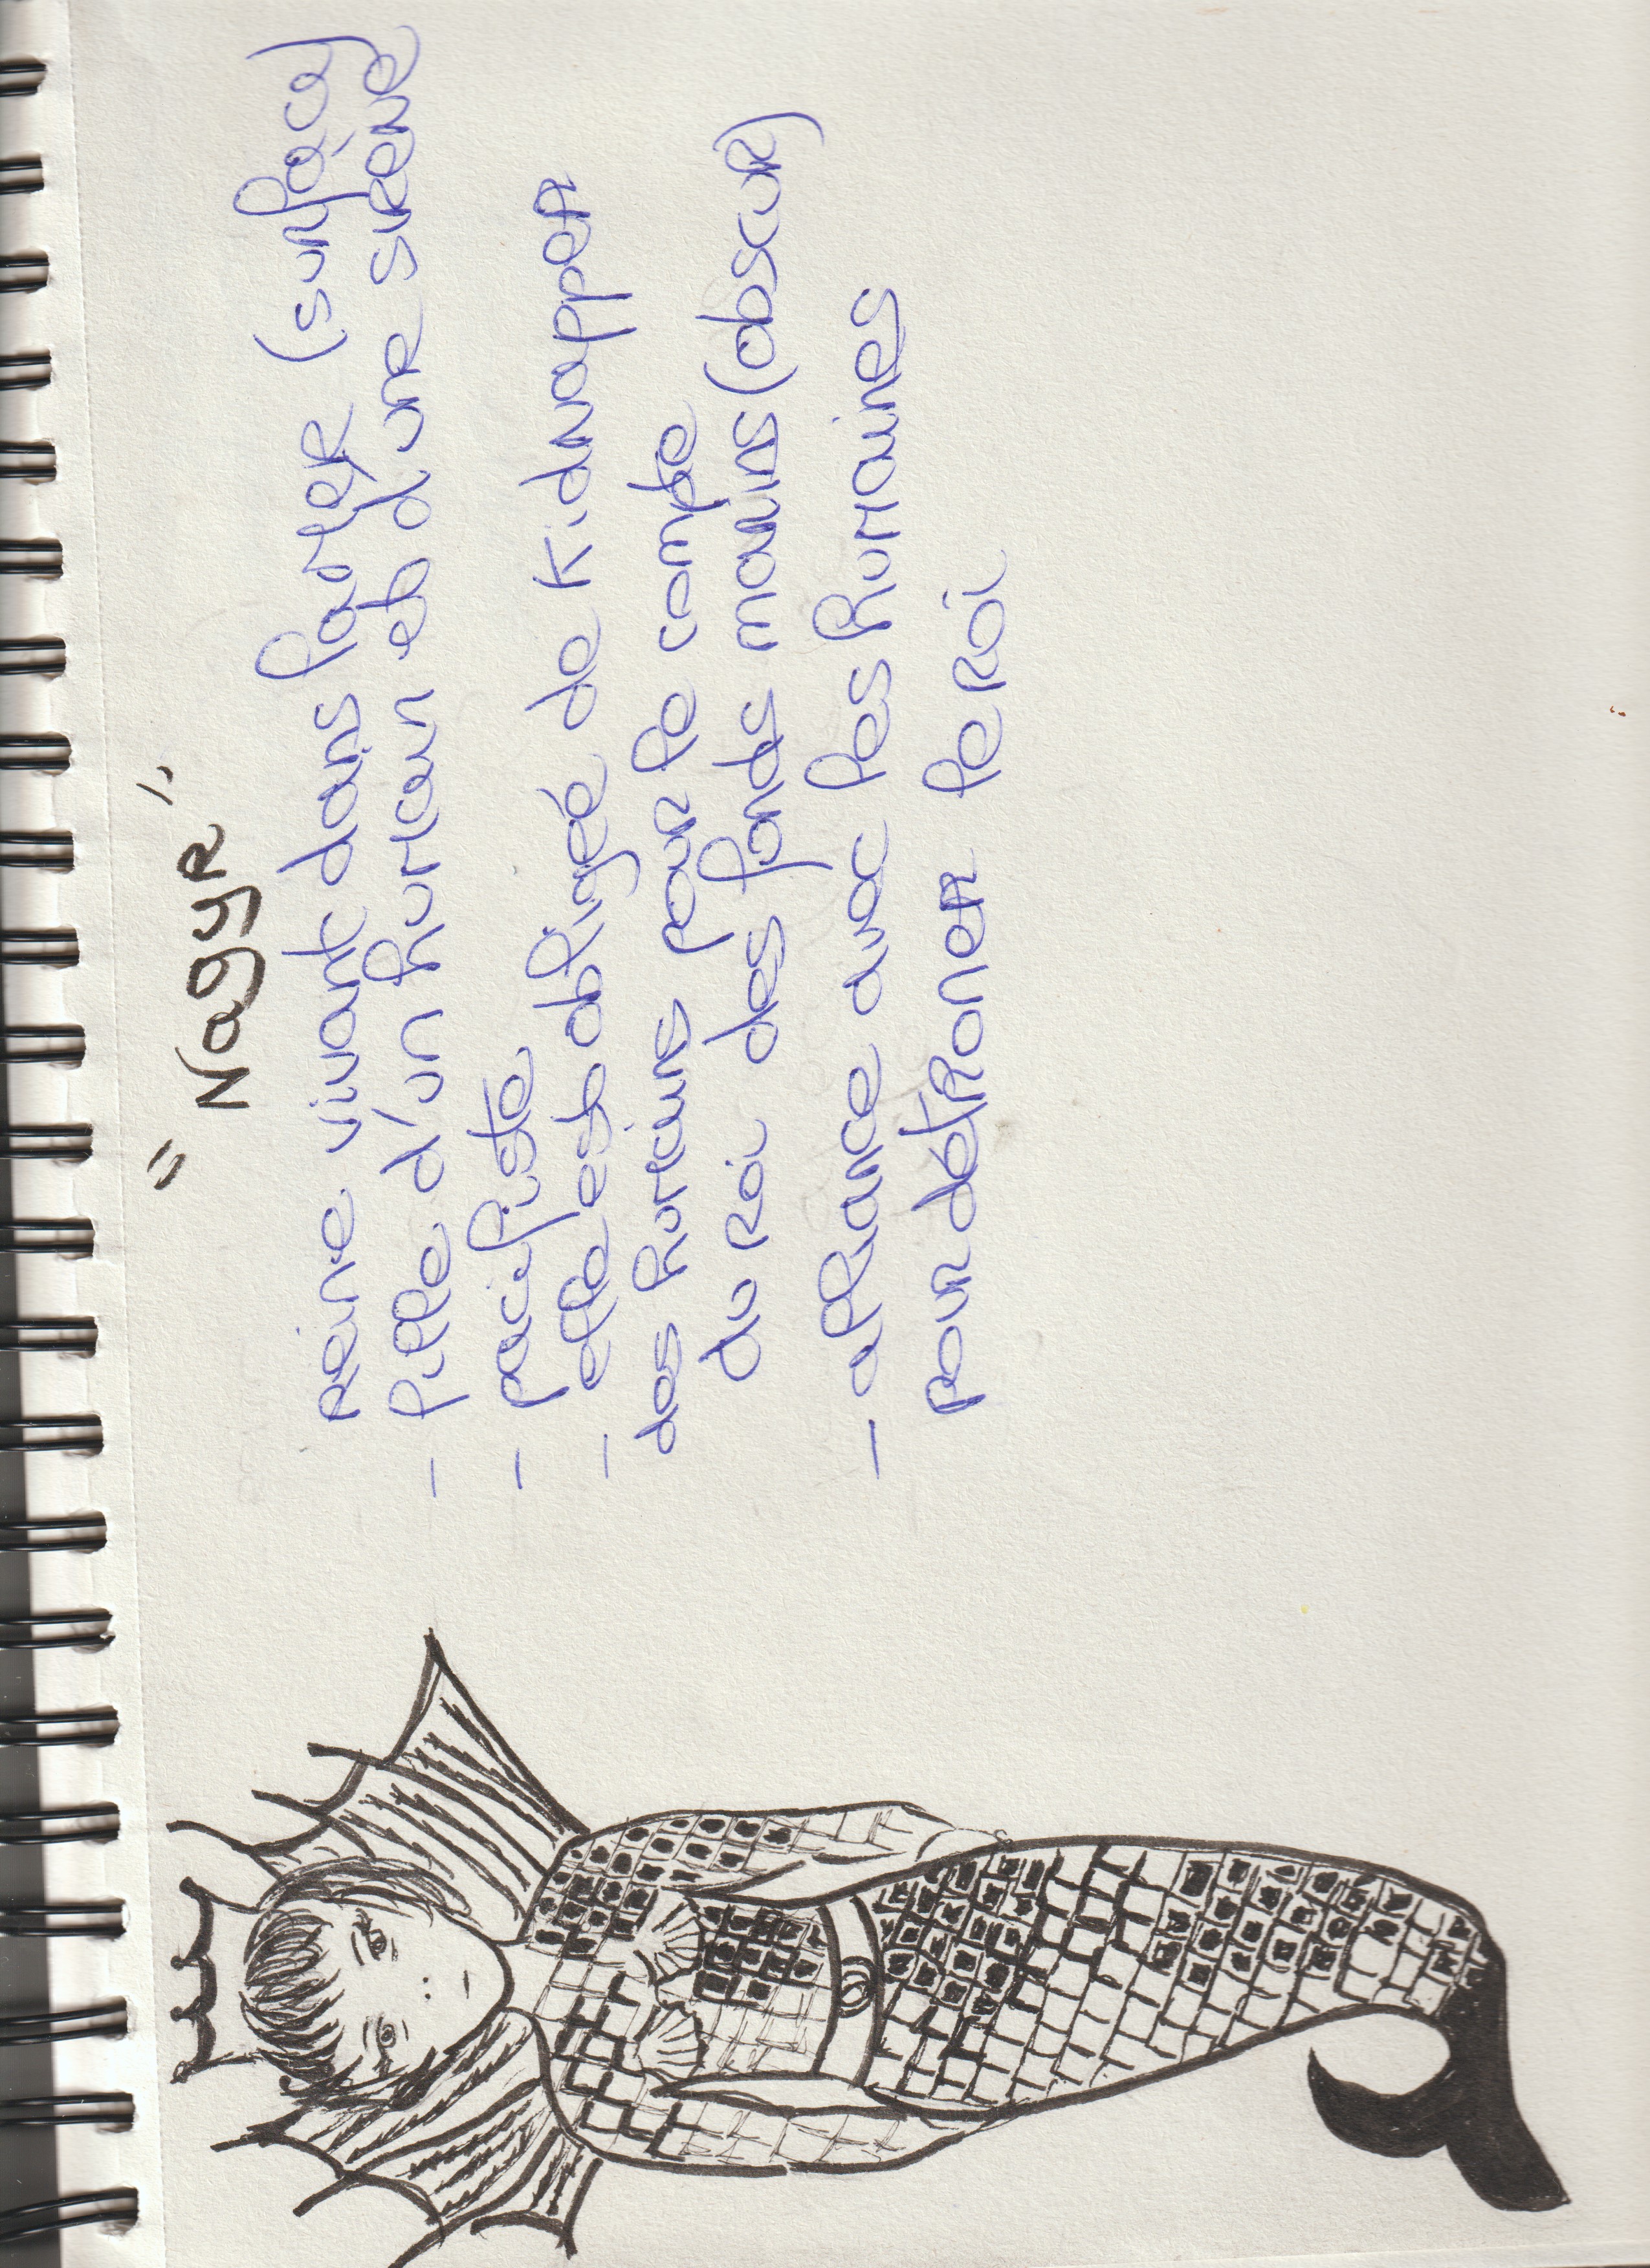 " Nagyr "
Reine vivant dans la mer (surface)
- fille d'un humain et d'une sirène
- pacifiste
- elle est obligée de kidnapper
des humains pour le compte
du roi des fonds marins (obscur)
- alliance avec les humaines
pour detroner le roi